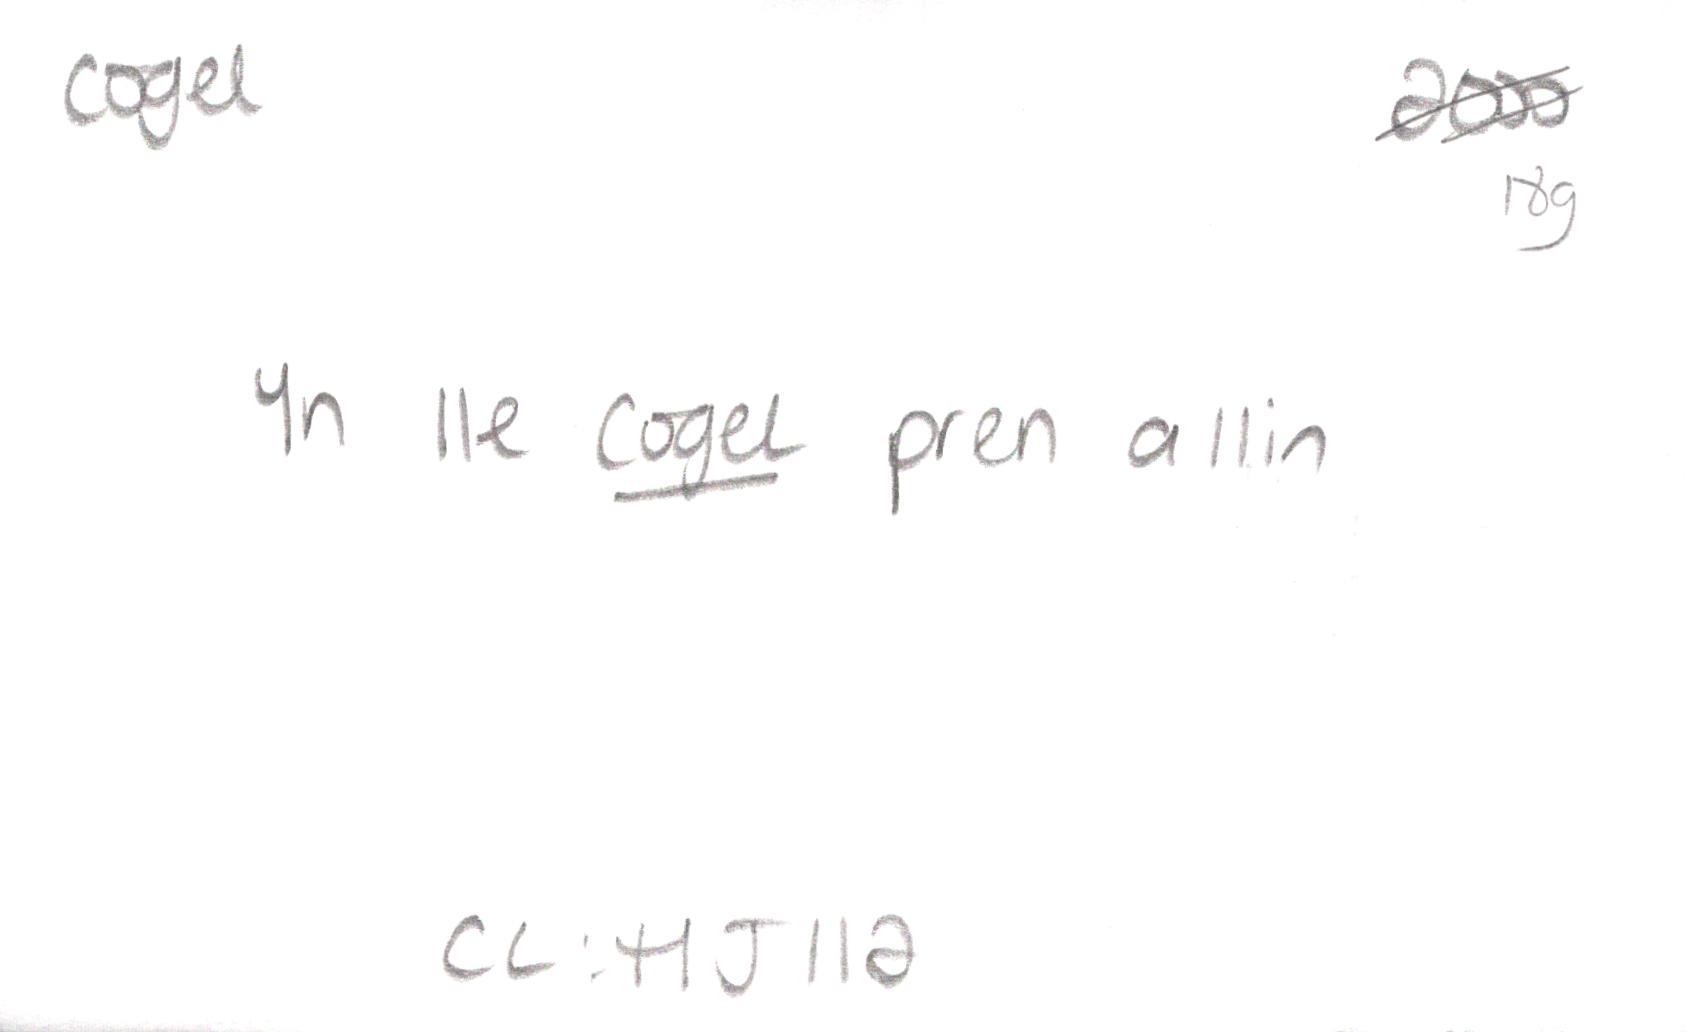 cogel
2000
18g
Yn lle cogel pren allin
CL:HJ112